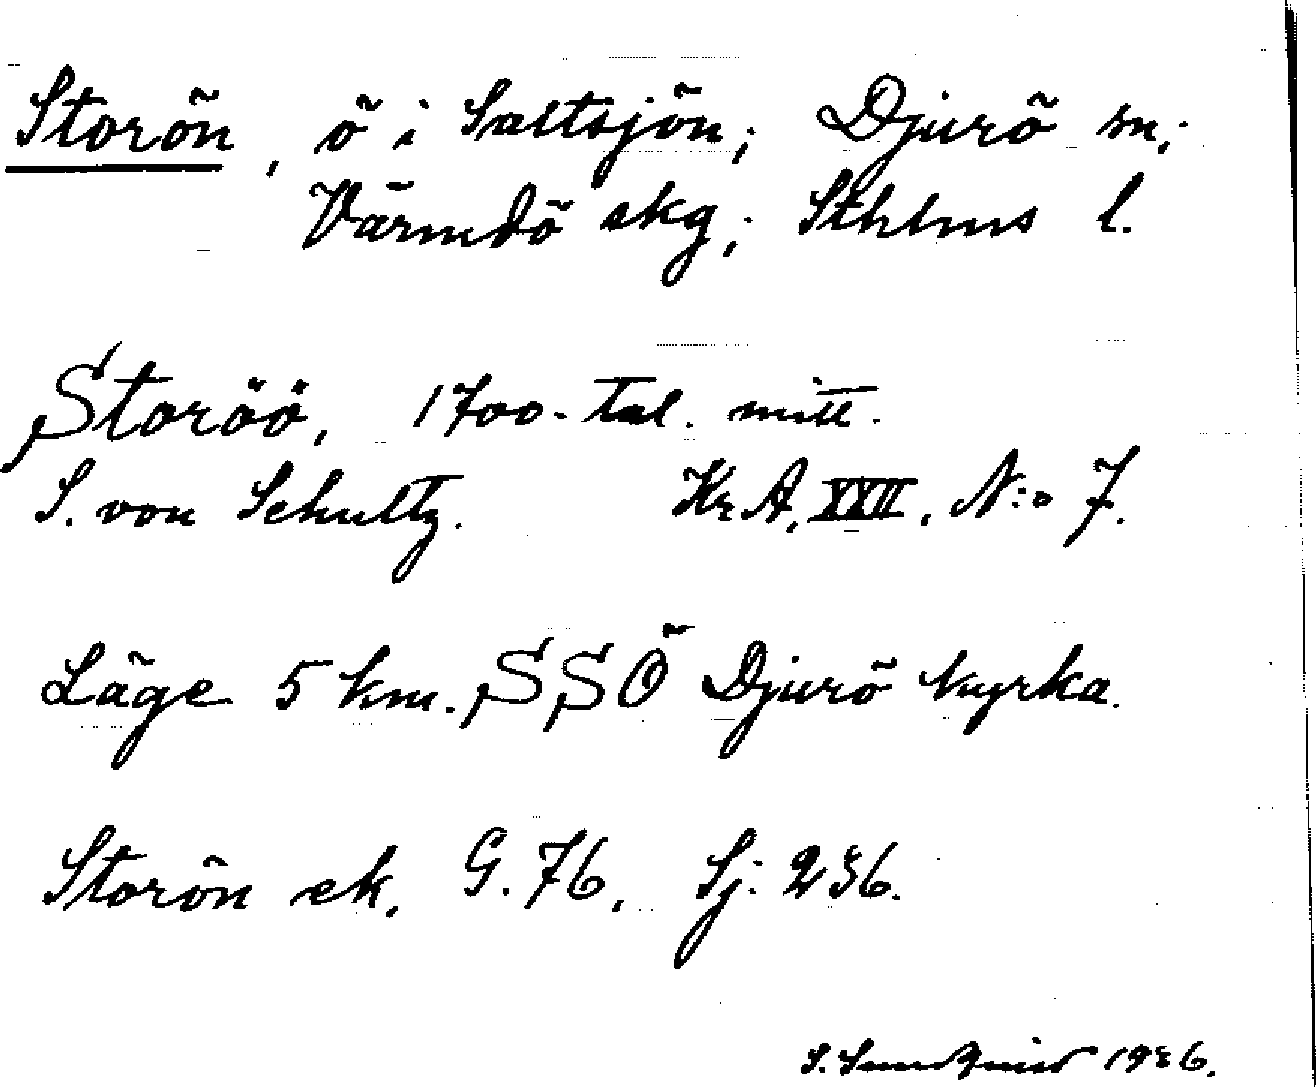 Storön, ö i Saltsjön; Djurö sn;
Värmdö skg; Sthlms l.
Storöö, 1700-tal. mitt.
S. von Schultz. Kr. A, XXII, N:o 7.
Läge 5 km. SSÖ Djurö kyrka.
Storön ek. G. 76, Sj: 236.
S. Sundquist 1936.